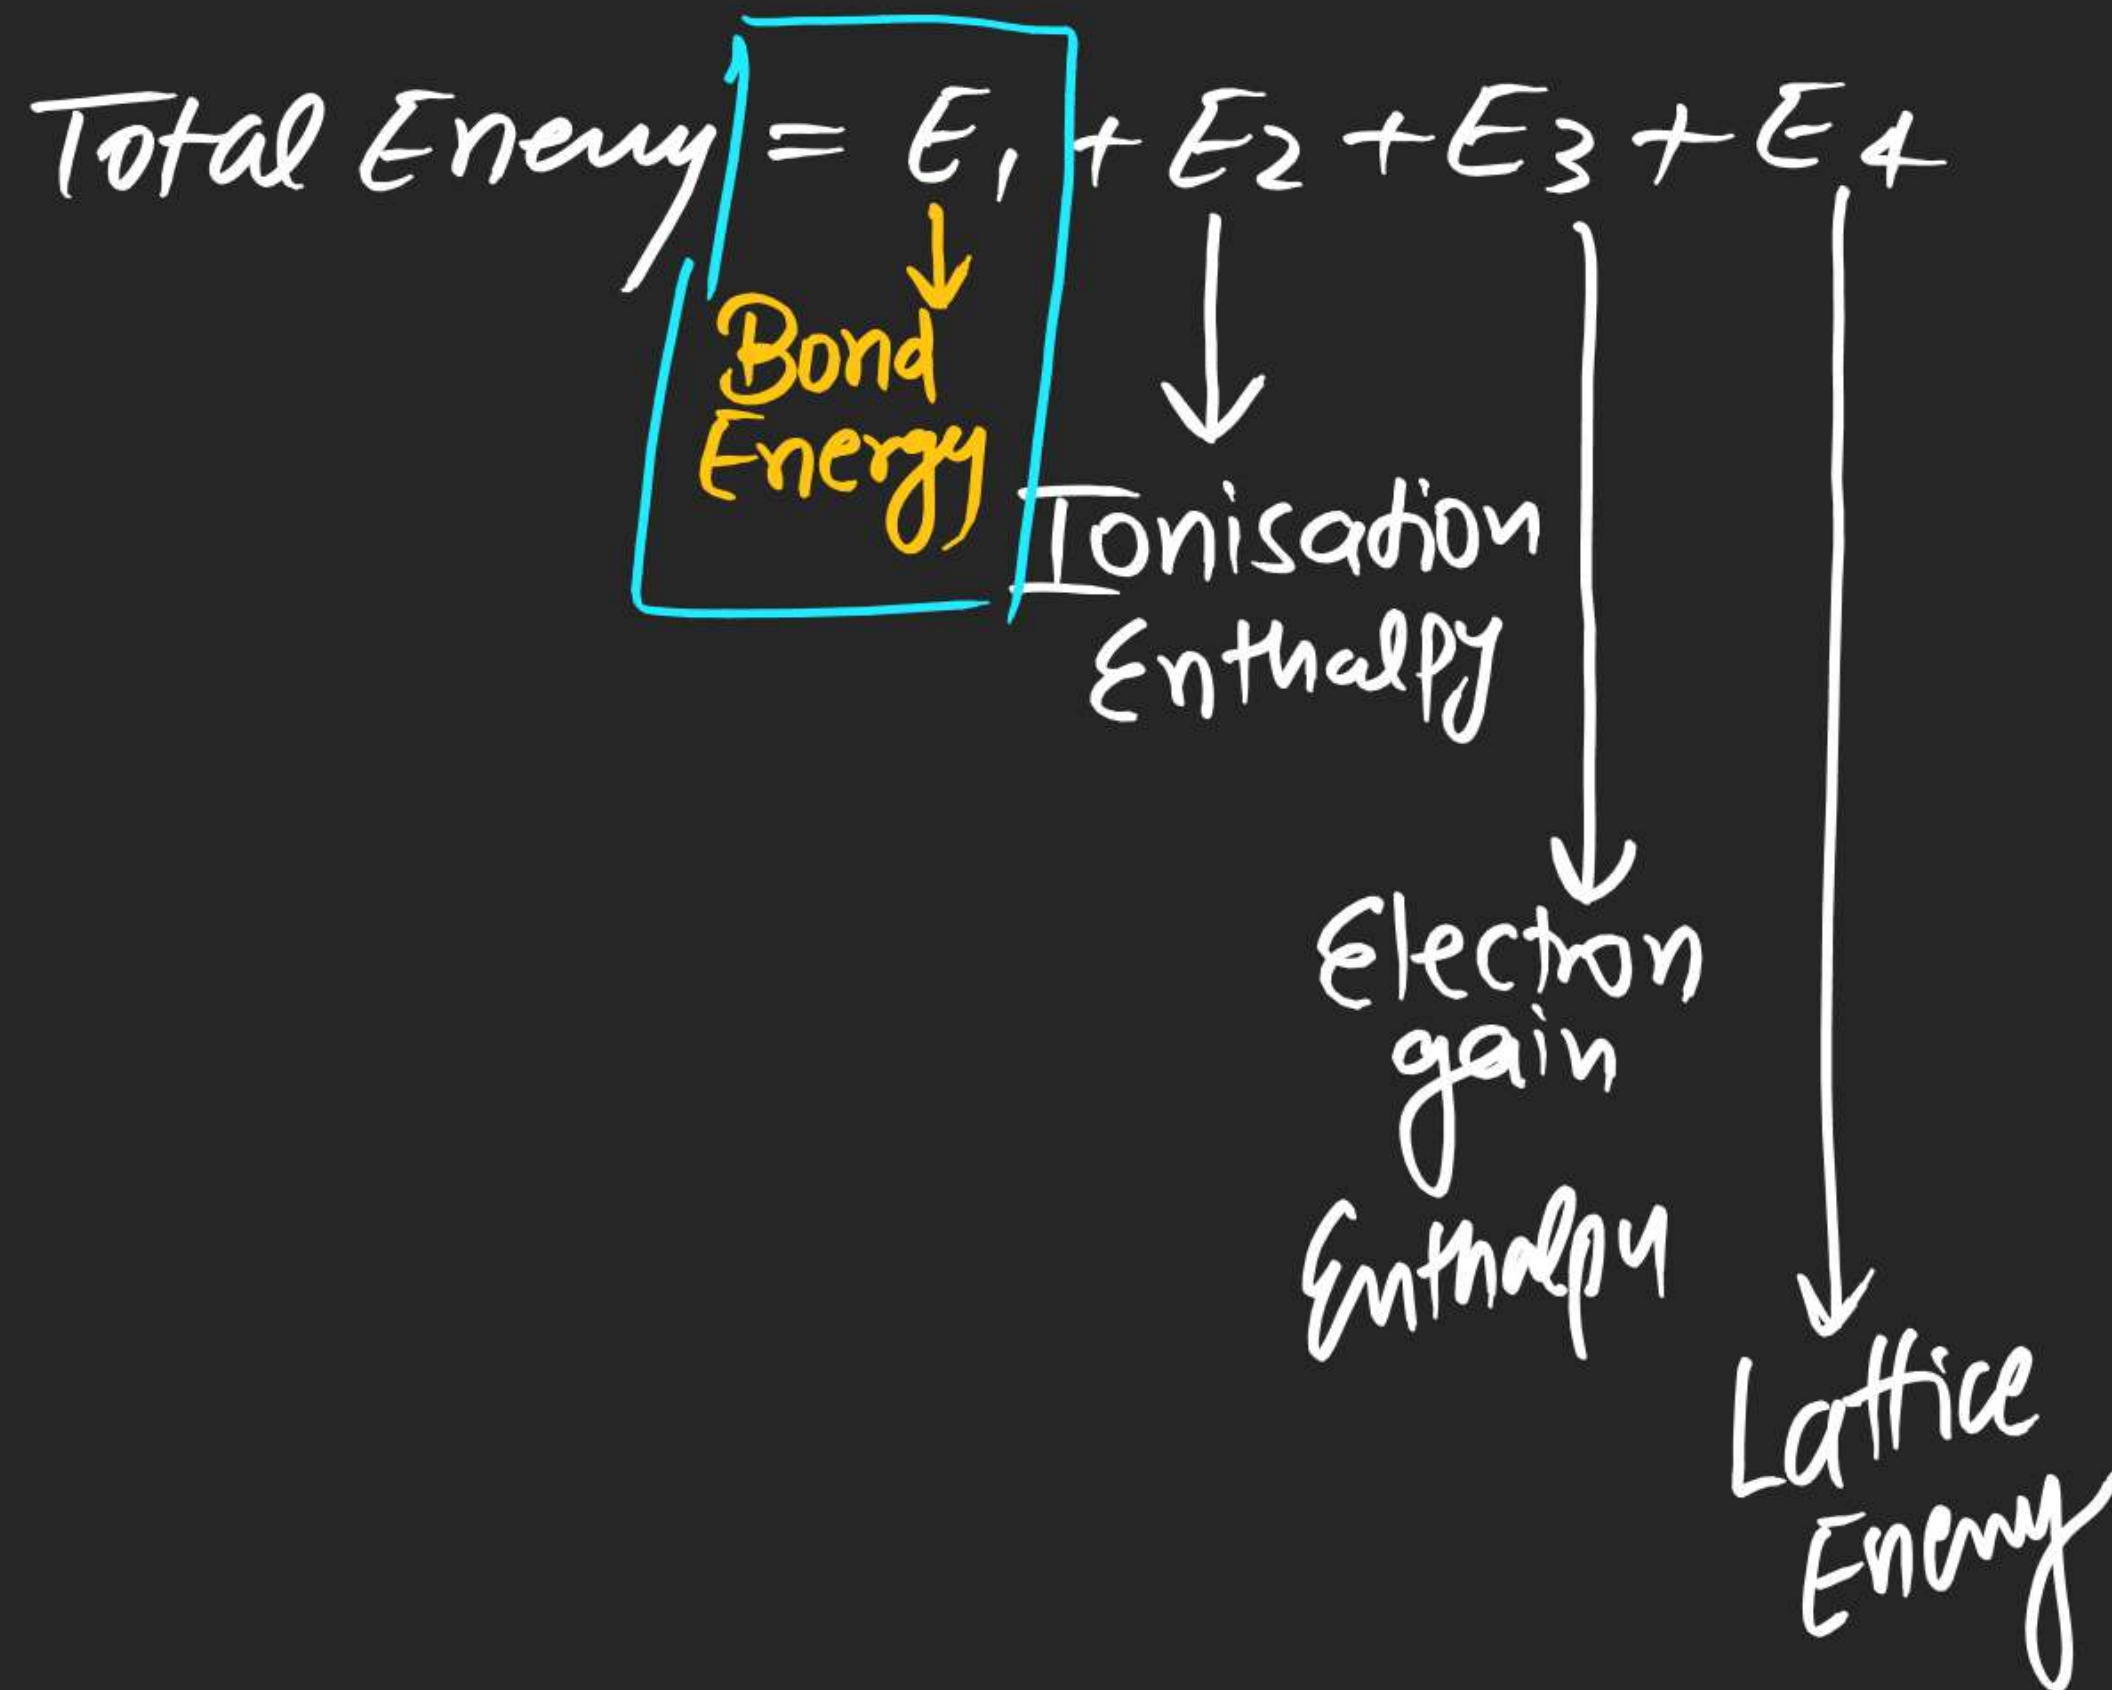 Total Energy = E1 + E2 + E3 + E4
Bond
Energy
Ionisation
Enthalpy
Electron
gain
Enthalpy
Lattice
Energy